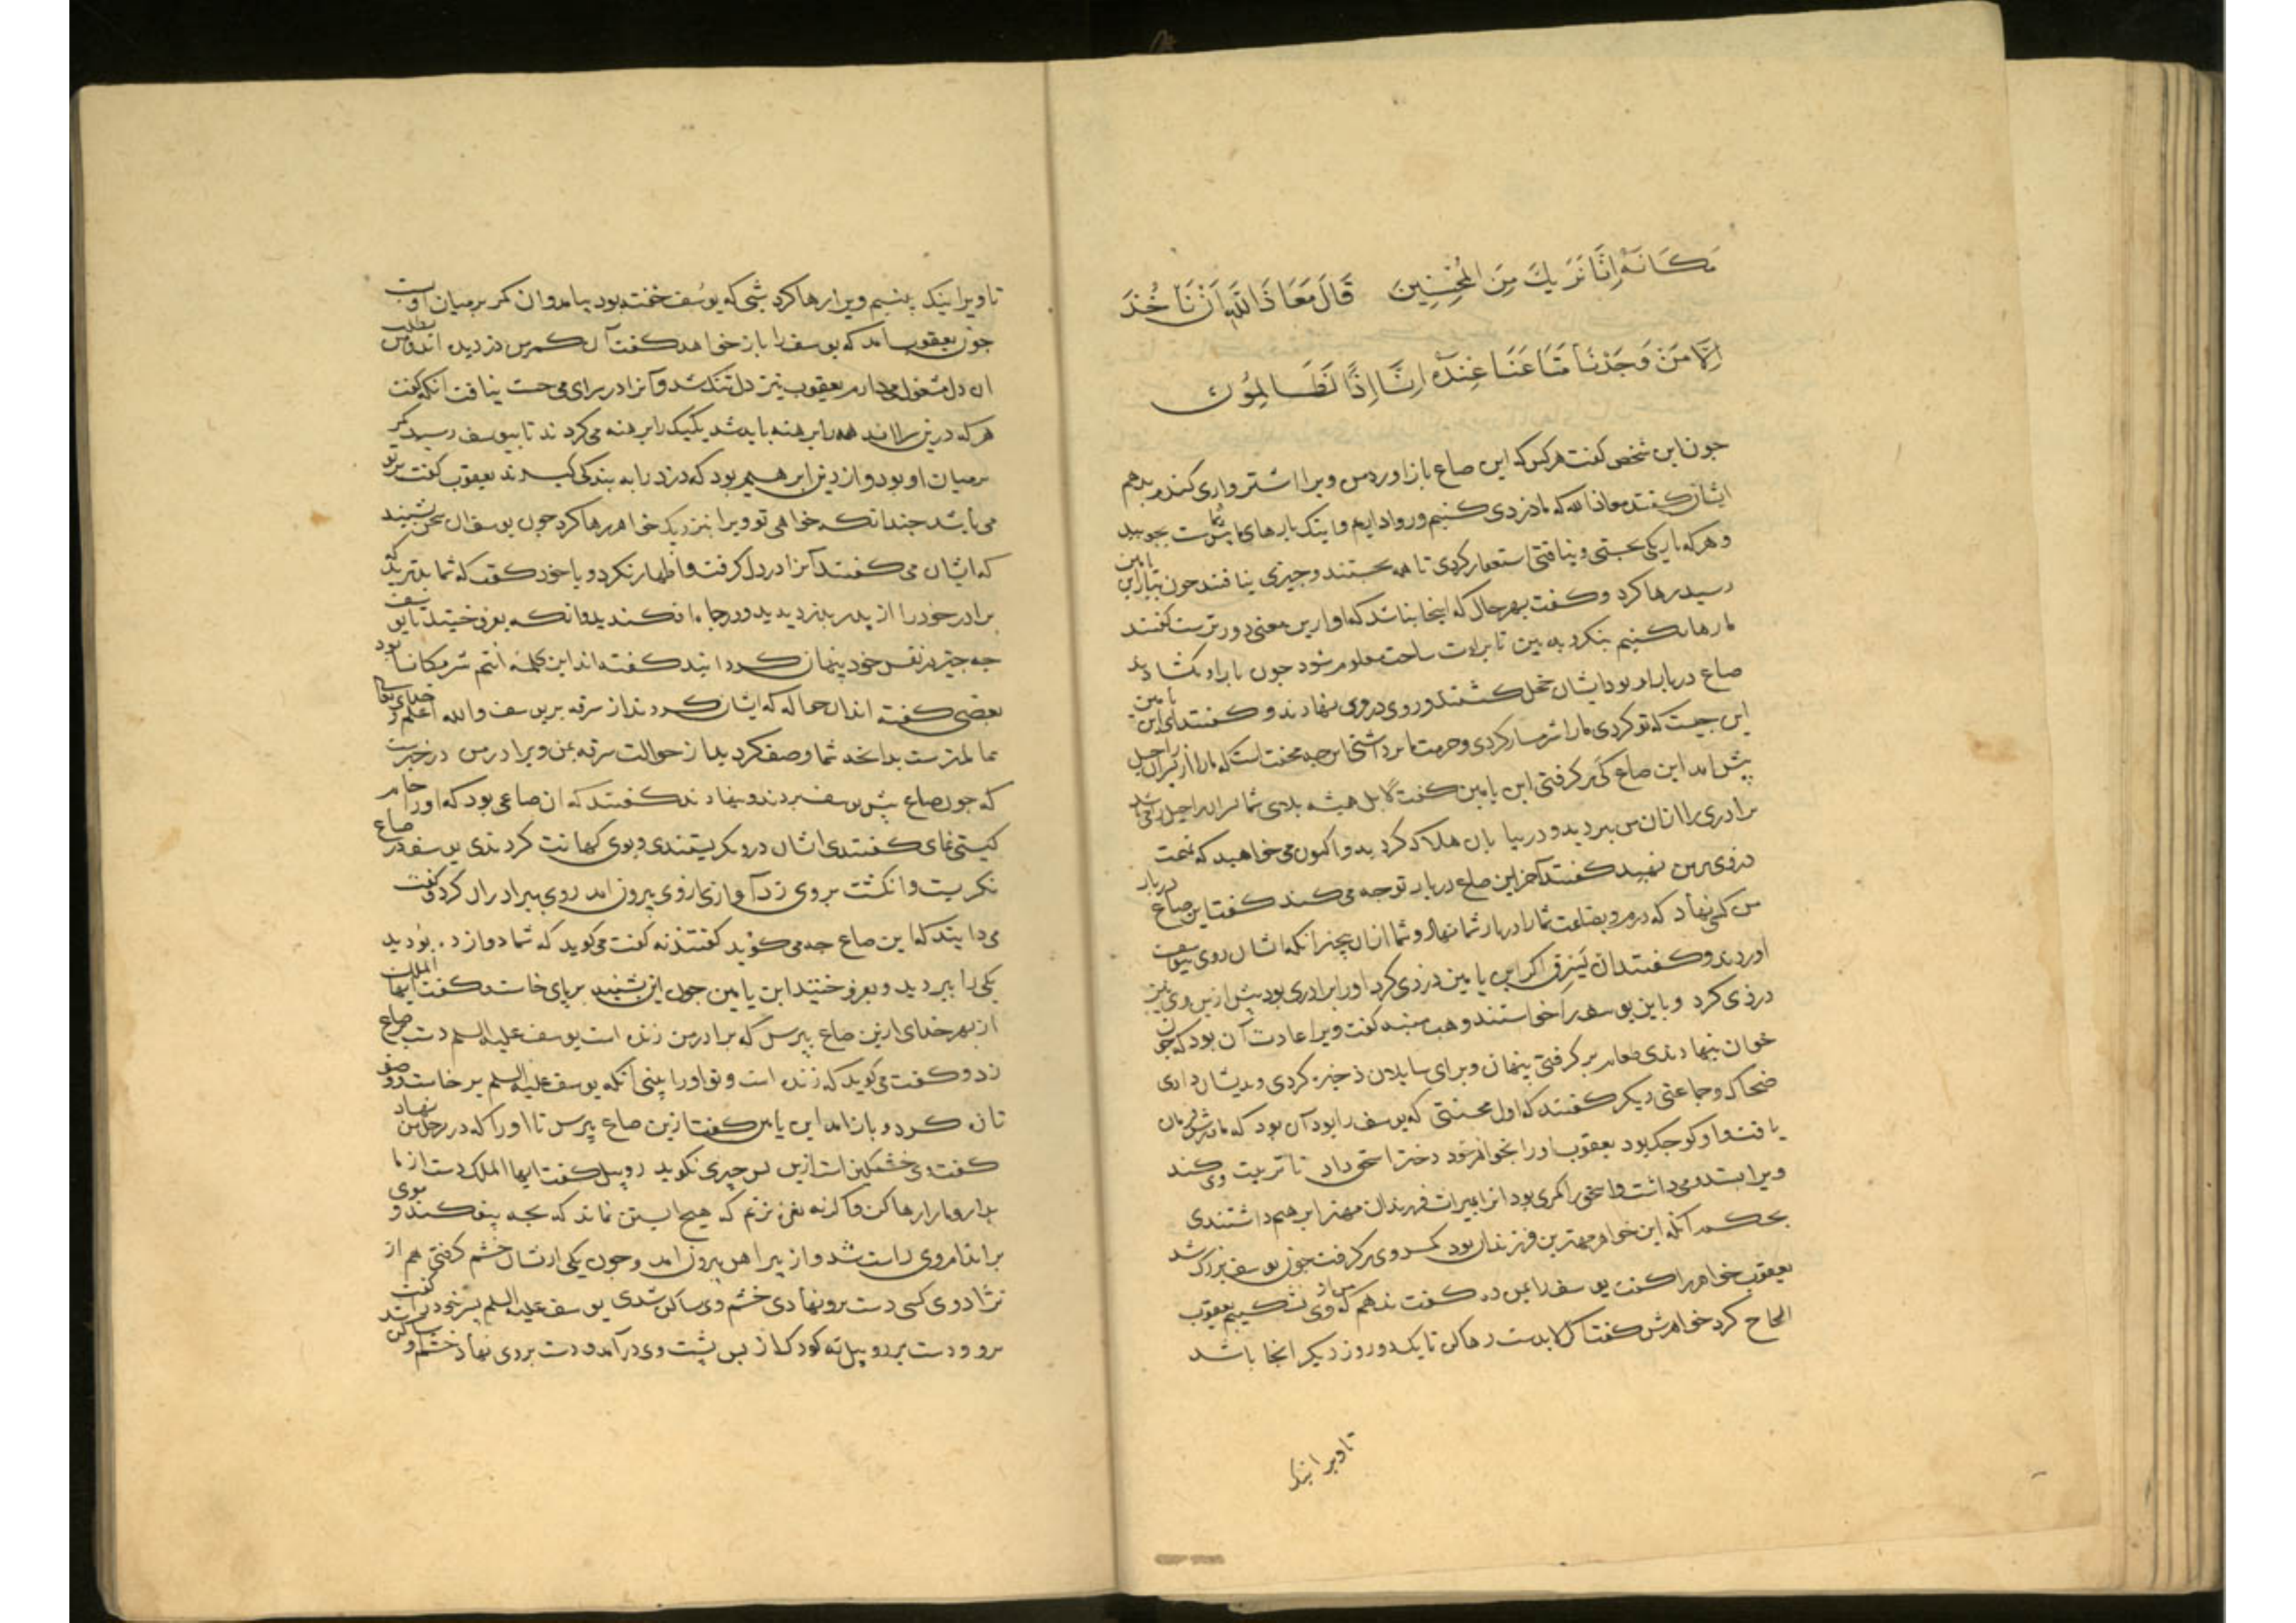 مَكَانَهُ اِنَّا نَرَيكَ مِنَ المُحْسِنِينَ قَالَ مَعَاذَ اللَّهِ اَنْ نَاخُذَ
اِلَّا مَنْ وَجَدْنَا مَتَاعَنَا عِنْدَهُ اِنَّا اِذًا لَظَالِمُونَ
جون این شخص کفت هرکس که این صاع باز اورد من ویرا اشترواری کندم بدهم
ایشان کفتند معاذالله که ما دزدی کنیم و روا داریم و اینک بارهای ما پش شماست بجویید
و هرکه باریکی بجستی و نیافتی استغفار کردی تا همه بجستند و جیزی نیافتند جون ببار ابن یامین
رسید رها کرد و کفت بهر حال که اینجا نباشد که او ازین معنی دورترست کفتند
ما رها نکنیم بنکرد به بین تا براءت ساحت معلوم شود جون بار او بکشادند
صاع در بار او بود ایشان خجل کشتند و روی در وی نهادند و کفتند ای ابن یامین
این جیست که تو کردی ما را شرمسار کردی و حرمت ما برداشتی این جه محنت است که ما را از پسران راحیل
پش امد این صاع کی بر کرفتی ابن یامین کفت لا بل همیشه بلای شما پسران راحیل را می باشد
برادری را از ان من ببردید و در بیابان هلاک کردید و اکنون می خواهید که تهمت
دزدی بر من نهید کفتند آخر این صاع در بار تو جه می کند کفت این صاع در بار
من کسی نهاد که درم و بضاعت شما را در بار شما نهاد و شما از ان بیخبر انکه ایشان روی بیوسف
اوردند و کفتند ان یَسرِق اکر ابن یامین دزدی کرد او را برادری بود پش ازین وی نیز
دزدی کرد و باین یوسف را خواستند وهب منبه کفت ویرا عادت آن بود که جون
خوان بنهادندی طعام بر کرفتی پنهان و برای سایلان ذخیره کردی و بدیشان دادی
ضحاک و جماعتی دیکر کفتند که اول محنتی که یوسف را بود آن بود که مادرش فرمان
یافت و او کوجک بود یعقوب او را بخواهر خود دختر اسحق داد تا تربیت وی کند
ویرا دوست می داشت و اسحق را کمری بود انرا بمیراث فرزندان مهتر ابرهیم داشتندی
بحکم آنکه این خواهر مهترین فرزندان بود کمر وی بر کرفت جون یوسف بزرک شد
یعقوب خواهر را کفت یوسف را بمن ده کفت ندهم که من از وی نشکیبم یعقوب
الحاح کرد خواهرش کفت اکر لابدست رها کن تا یک دو روز دیکر انجا باشد
تا ویرا نیک
تا ویرا نیک ببینم ویرا رها کرد شبی که یوسف خفته بود بیامد و ان کمر بر میان او بست
جون یعقوب بیامد که یوسف را باز خواهد کفت آن کمر من دزدیده اند و من بطلب
ان دل مشغول می دارم یعقوب نیز دل تنک شد و آنرا در سرای می جست نیافت انکه کفت
هر که درین سرا اند همه را برهنه باید شد یکیک را برهنه می کردند تا بیوسف رسید کمر
بر میان او بود و از دین ابرهیم بود که دزد را به بندکی کیرند یعقوب کفت بر تو
می باشد جندانکه خواهی تو ویرا نیز دیک خواهر رها کرد جون یوسف ان سخن بشنید
که ایشان می کفتند آنرا در دل کرفت و اظهار نکرد و با خود کفت که شما بدترید که
برادر خود را از پدر بدزدیدید و در جاه افکندید و انکه بفروختید تا یوسف
جه جیز در نفس خود پنهان کرد ایند کفته اند این کلمه انتم شر مکانا بود
بعضی کفته اند ان حواله که ایشان کردند از سرقه بر یوسف والله اعلم و خدای تعالی
عالمترست بدانجه شما وصف کردید از حوالت سرقه بمن و برادر من در خبرست
که جون صاع پش یوسف بردند و بنهادند کفتند که ان صاعی بود که او را جام
کیتی نمای کفتندی ایشان در و نکریستندی و بوی کهانت کردندی یوسف در صاع
نکریست و انکشت بر وی زد آوازی از وی بیرون امد روی ببرادران کرد کفت
می دانید که این صاع جه می کوید کفتند نه کفت می کوید که شما دوازده بودید
یکی را ببردید و بفروختید ابن یامین جون این بشنید بر پای خاست و کفت ایها الملک
از بهر خدای ازین صاع بپرس که برادر من زنده است یوسف علیه السلم دست بر صاع
زد و کفت می کوید که زنده است و تو او را بینی آنکه یوسف علیه السلم بر خاست و وضو
تازه کرد و باز امد ابن یامین کفت ازین صاع بپرس تا او را که در رحل من نهاد
کفت وی خشمکین است ازین پس جیزی نکوید روبیل کفت ایها الملک دست از ما
بدار و ما را رها کن و اکر نه نعره بزنم که هیچ ابستن نماند که بجه بیفکند و موی
بر اندام وی راست شد و از پیراهن بیرون امد و جون یکی از ایشان خشم کرفتی هم از
نژاد وی کسی دست برو نهادی خشم وی ساکن شدی یوسف علیه السلم پسر خود را کفت
برو و دست بر روبیل نه کودک از پس پشت وی در آمد و دست بر وی نهاد خشم او ساکن شد